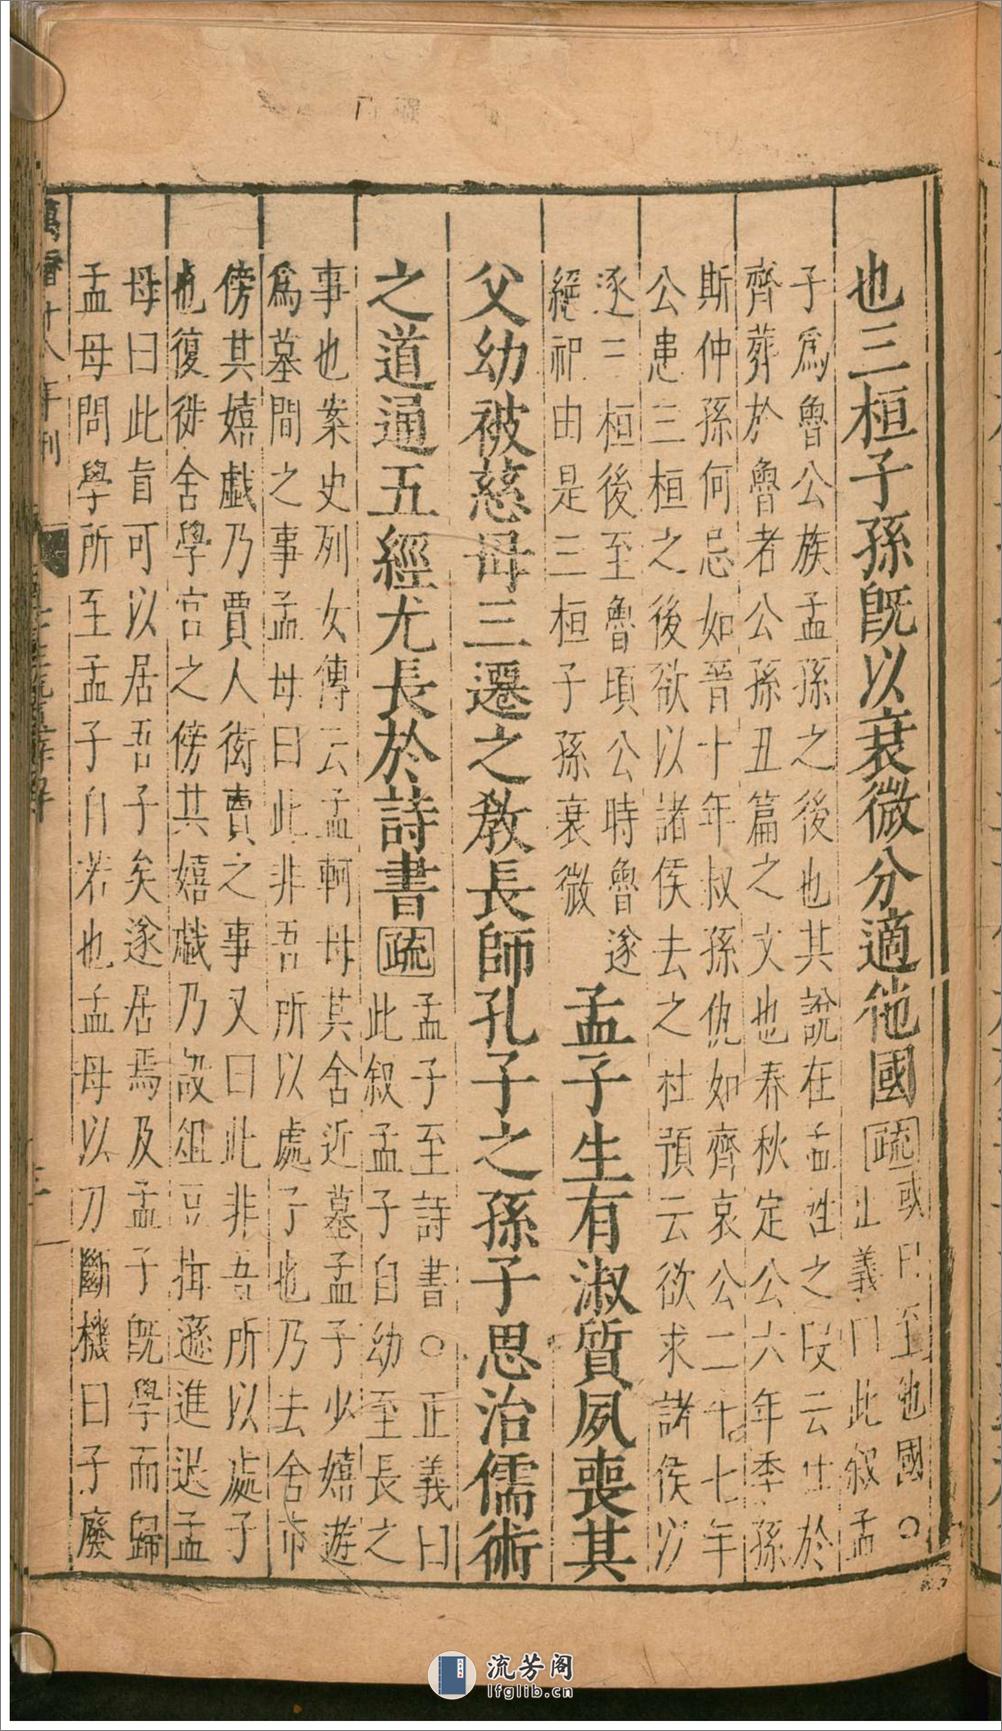 也三桓子孫既以衰微分適他國疏或曰至他國○
正義曰此叙孟
子爲魯公族孟孫之後也其說在孟姓之段云仕於
齊葬於魯者公孫丑篇之文也春秋定公六年季孫
斯仲孫何忌如晉十年叔孫仇如齊哀公二十七年
公患三桓之後欲以諸侯去之杜預云欲求諸侯以
逐三桓後至魯頃公時魯遂
絕祀由是三桓子孫衰微
孟子生有淑質夙喪其
父幼被慈母三遷之教長師孔子之孫子思治儒術
之道通五經尤長於詩書疏孟子至詩書○正義曰
此叙孟子自幼至長之
事也案史列女傳云孟軻母其舍近墓孟子少嬉遊
爲墓間之事孟母曰此非吾所以處子也乃去舍市
傍其嬉戲乃賈人衒賣之事又曰此非吾所以處子
也復徙舍學宮之傍其嬉戲乃設俎豆揖遜進退孟
母曰此眞可以居吾子矣遂居焉及孟子旣學而歸
孟母問學所至孟子自若也孟母以刀斷機曰子廢
萬曆十八年刊
流芳阁
lfglib.cn